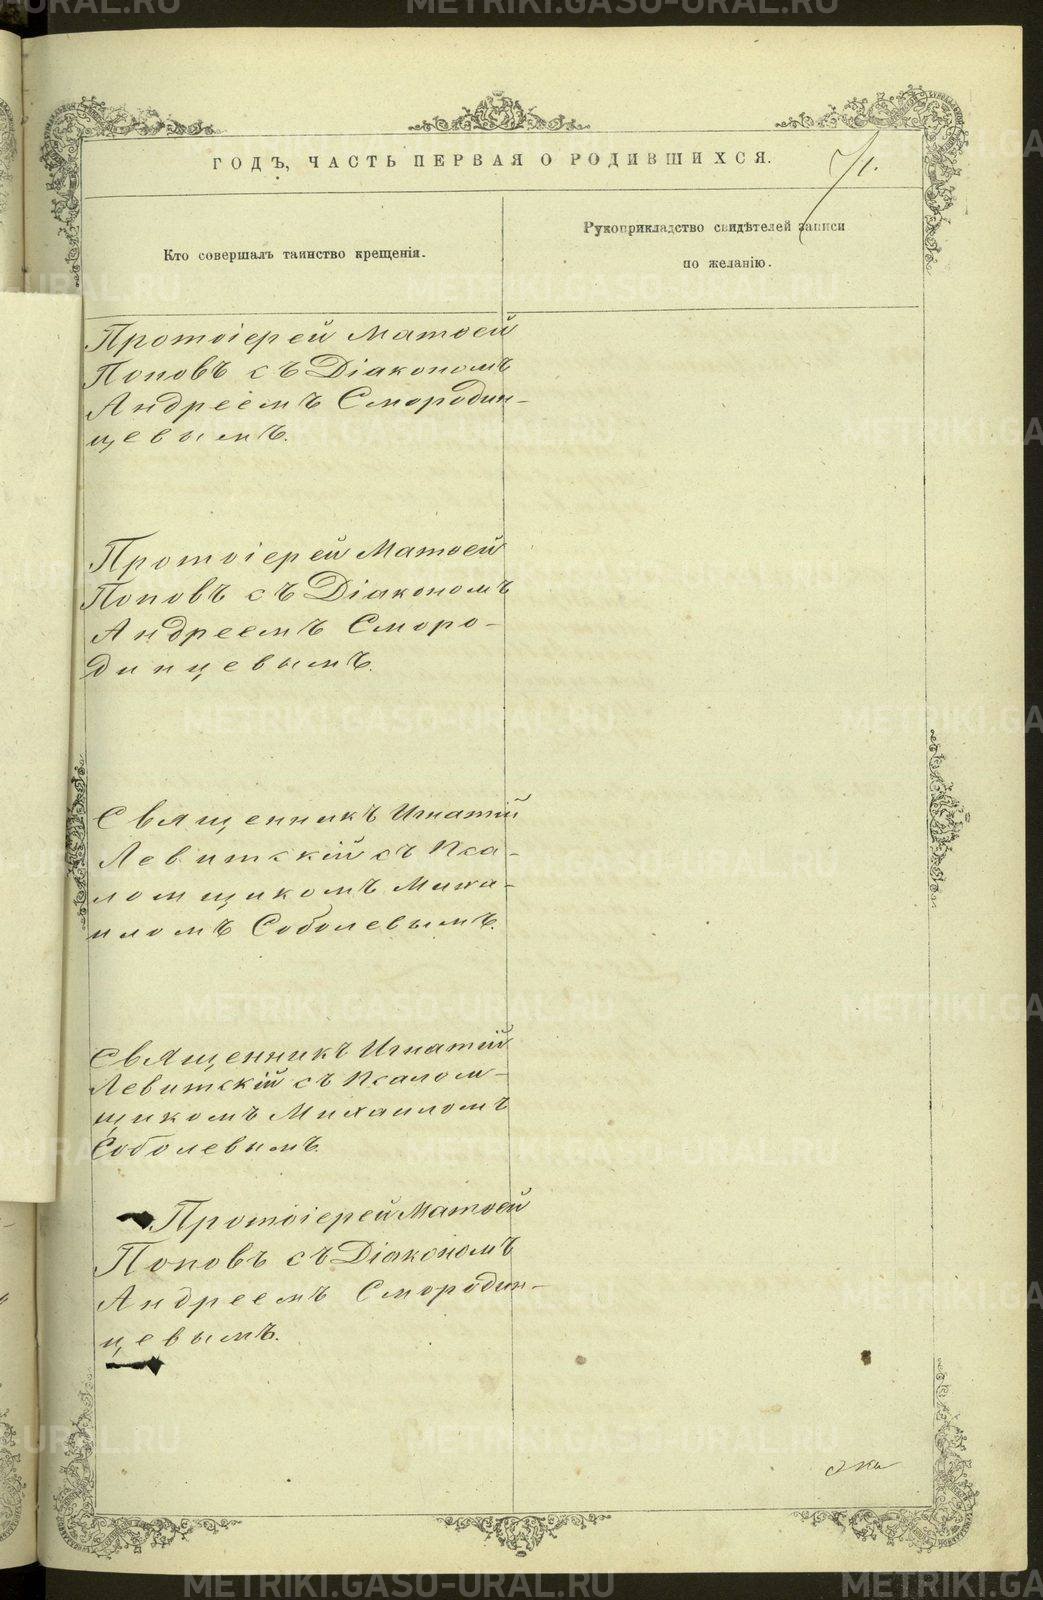 ГОДЪ, ЧАСТЬ ПЕРВАЯ О РОДИВШИХСЯ.
71.
Кто совершалъ таинство крещенія.
Рукоприкладство свидѣтелей записи
по желанію.
Протоіерей Матѳей
Поповъ съ Діакономъ
Андреемъ Смородин-
цевымъ.
Протоіерей Матѳей
Поповъ съ Діакономъ
Андреемъ Сморо-
динцевымъ.
Священникъ Игнатій
Левитскій съ Пса-
ломщикомъ Миха-
иломъ Соболевымъ.
Священникъ Игнатій
Левитскій съ Псалом-
щикомъ Михаиломъ
Соболевымъ.
Протоіерей Матѳей
Поповъ съ Діакономъ
Андреемъ Смородин-
цевымъ.
METRIKI.GASO-URAL.RU